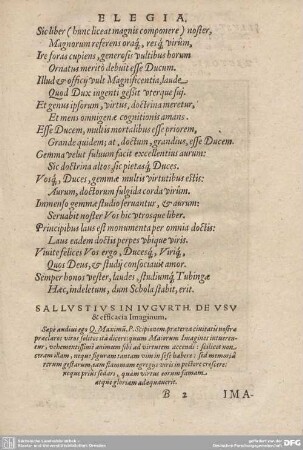 ELEGIA.
Sic liber (hunc liceat magnis componere) noster,
Magnorum referens oraq́, resq́ virûm,
Ire foras cupiens, generosis vultibus horum
Ornatus meritò debuit esse Ducum.
Illud & officij vult Magnificentia, laude
Quod Dux ingenti gessit vterque sui.
Et genus ipsorum, virtus, doctrina meretur,
Et mens omnigenæ cognitionis amans.
Esse Ducem, multis mortalibus esse priorem,
Grande quidem: at, doctum, grandius, esse Ducem.
Gemma velut fuluum facit excellentius aurum:
Sic doctrina altos, sic pietasq́ Duces.
Vosq́, Duces, gemmæ multi virtutibus estis:
Aurum, doctorum fulgida corda virûm.
Immenso gemmæ studio seruantur, & aurum:
Seruabit noster Vos hic vtrosque liber.
Principibus laus est monumenta per omnia doctis:
Laus eadem doctis perpes vbique viris.
Viuite felices Vos ergo, Ducesq́, Viriq́,
Quos Deus, & studij consociauit amor.
Semper honos vester, laudes, studiumq́ Tubingæ
Hæc, indeletum, dum Schola stabit, erit.
SALLVSTIVS IN IVGVRTH. DE VSV
& efficacia Imaginum.
Sæpè audiui ego Q. Maximū, P. Scipionem, præterea ciuitatis nostræ
præclaros viros solitos ità dicere: quum Maiorum Imagines intuerentur,
vehementissimè animum sibi ad virtutem accendi: scilicet non
ceram illam, neque figuram tantam vim in sese habere: sed memoria
rerum gestarum, eam flammam egregijs viris in pectore crescere:
neque priùs sedari, quàm virtus eorum famam
atque gloriam adæquauerit.
B 2 IMA-